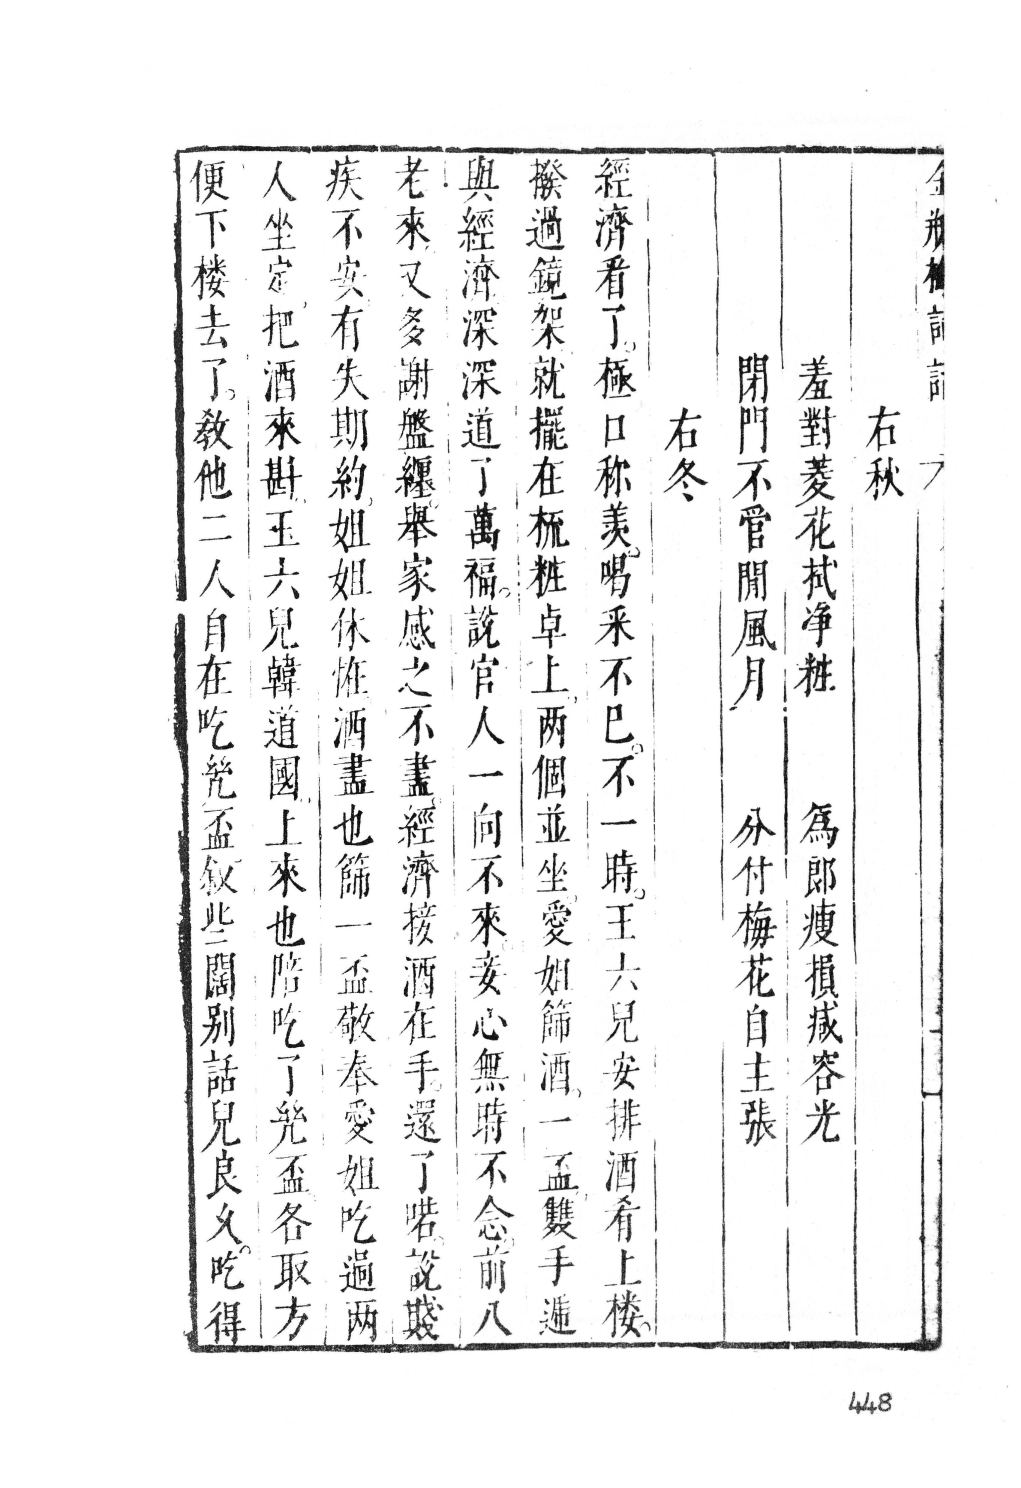 金瓶梅詞話
右秋
羞對菱花拭净粧　為郎瘦損减容光
閉門不管閒風月　分付梅花自主張
右冬
經濟看了。極口称羡。喝采不巳。不一時。王六兒安排酒肴上楼。
撥過鏡架就擺在梳粧卓上。两個並坐。愛姐篩酒。一盃雙手遞
與經濟深深道了萬福。說官人一向不來。妾心無時不念。前八
老來。又多謝盤纏。舉家感之不盡。經濟接酒在手。還了喏。說賤
疾不安。有失期約。姐姐休恠酒盡也篩一盃敬奉愛姐吃過两
人坐定。把酒來斟。王六兒韓道國上來也陪吃了㡬盃。各取方
便下楼去了。敎他二人自在吃㡬盃。叙些闊别話兒良久。吃得
448